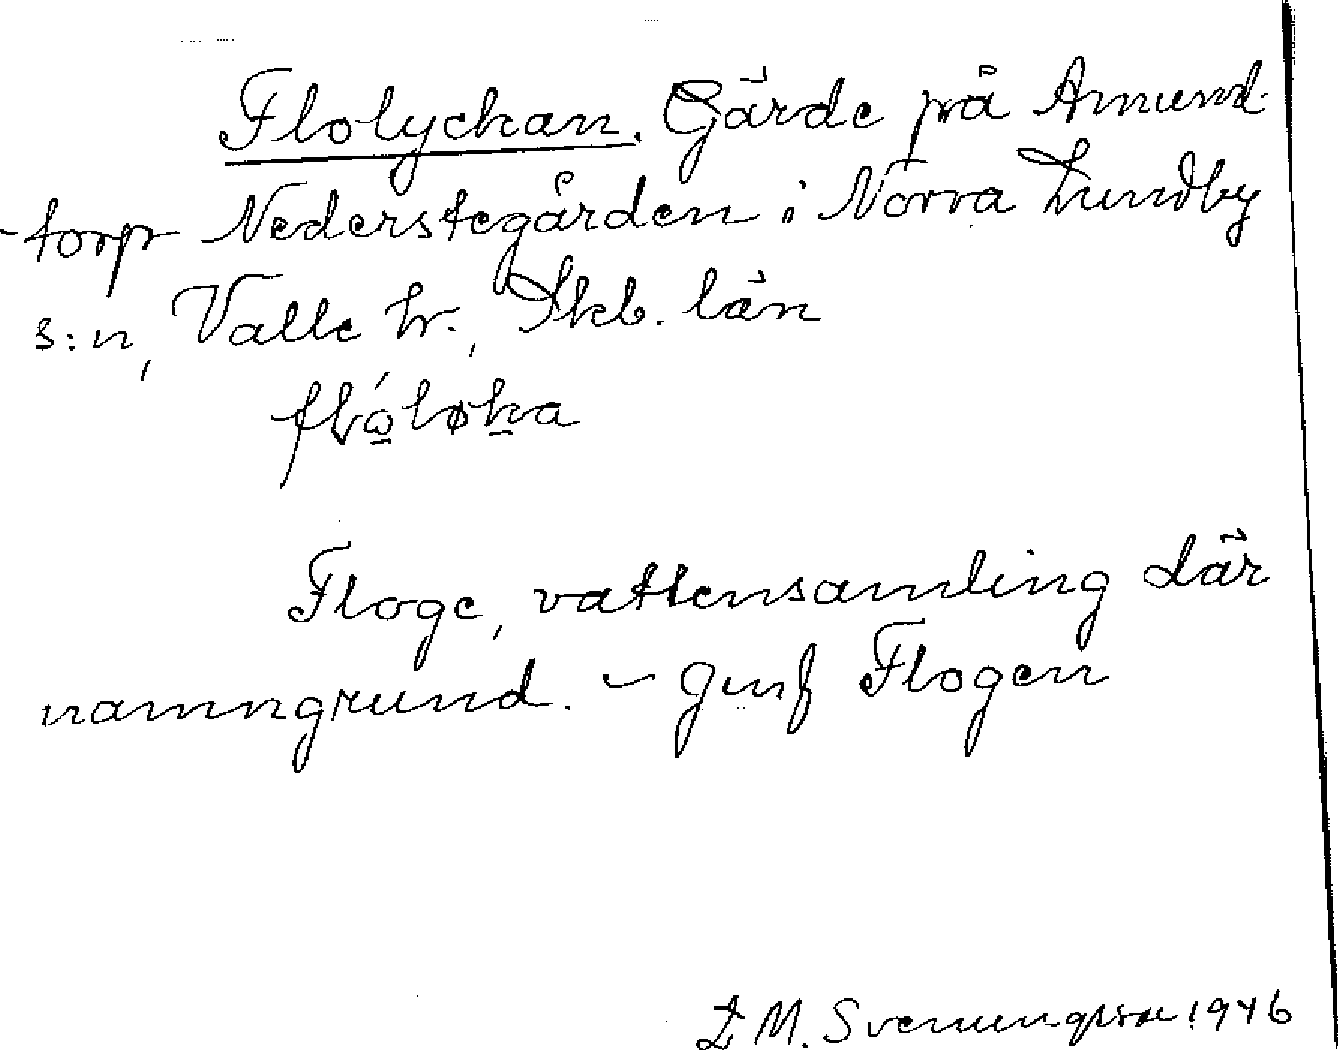 Flolyckan. Gärde på Amund-
-torp Nederstegården i Norra Lundby
s:n, Valle hr., Skb. län
flóløka
Floge, vattensamling där
namngrund. - Jmf Flogen
M. Svenungsson 1946